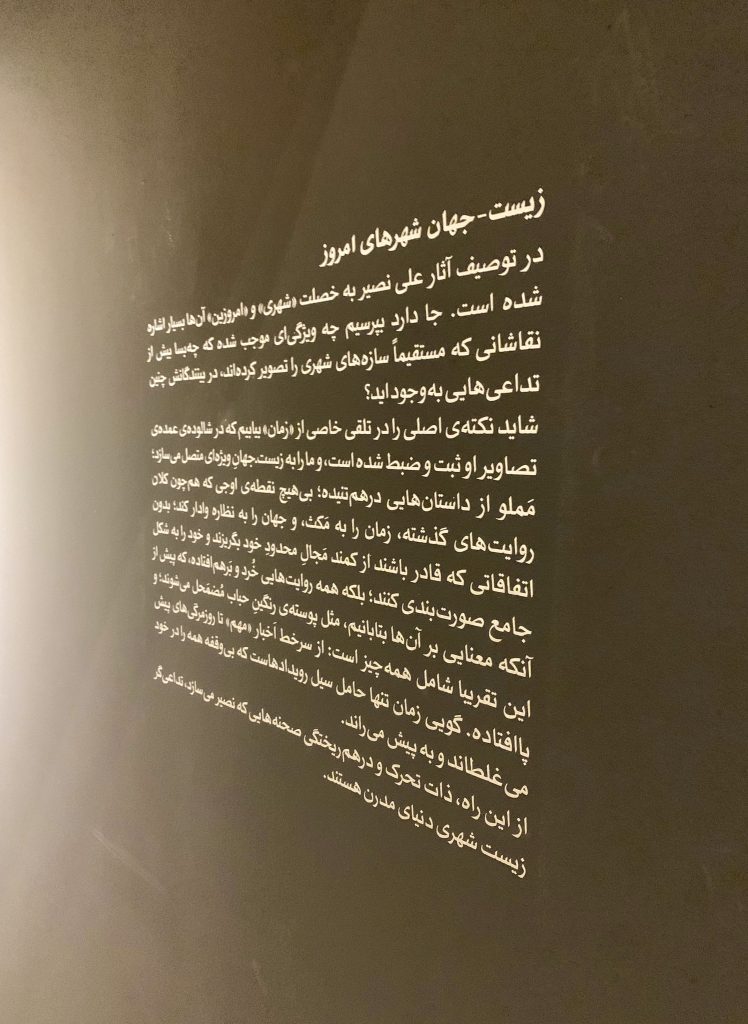 زیست-جهان شهرهای امروز
در توصیف آثار علی نصیر به خصلت «شهری» و «امروزین» آن‌ها بسیار اشاره
شده است. جا دارد بپرسیم چه ویژگی‌ای موجب شده که چه‌بسا بیش از
نقاشانی که مستقیماً سازه‌های شهری را تصویر کرده‌اند، در بینندگانش چنین
تداعی‌هایی به‌وجود اید؟
شاید نکته‌ی اصلی را در تلقی خاصی از «زمان» بیابیم که در شالوده‌ی عمده‌ی
تصاویر او ثبت و ضبط شده است، و ما را به زیست‌جهانِ ویژه‌ای متصل می‌سازد؛
مَملو از داستان‌هایی درهم‌تنیده؛ بی‌هیچ نقطه‌ی اوجی که هم‌چون کلان
روایت‌های گذشته، زمان را به مَکث، و جهان را به نظاره وادار کند؛ بدون
اتفاقاتی که قادر باشند از کمند مَجالِ محدودِ خود بگریزند و خود را به شکل
جامع صورت‌بندی کنند؛ بلکه همه روایت‌هایی خُرد و بَرهم‌افتاده، که پیش از
آنکه معنایی بر آن‌ها بتابانیم، مثل پوسته‌ی رنگینِ حباب مُضمَحل می‌شوند؛ و
این تقریبا شامل همه‌چیز است: از سرخط اَخبار «مهم» تا روزمرگی‌های پیش
پاافتاده. گویی زمان تنها حامل سیل رویدادهاست که بی‌وقفه همه را در خود
می‌غلطاند و به پیش می‌راند.
از این راه، ذات تحرک و درهم‌ریختگی صحنه‌هایی که نصیر می‌سازد، تداعی‌گر
زیست شهری دنیای مدرن هستند.